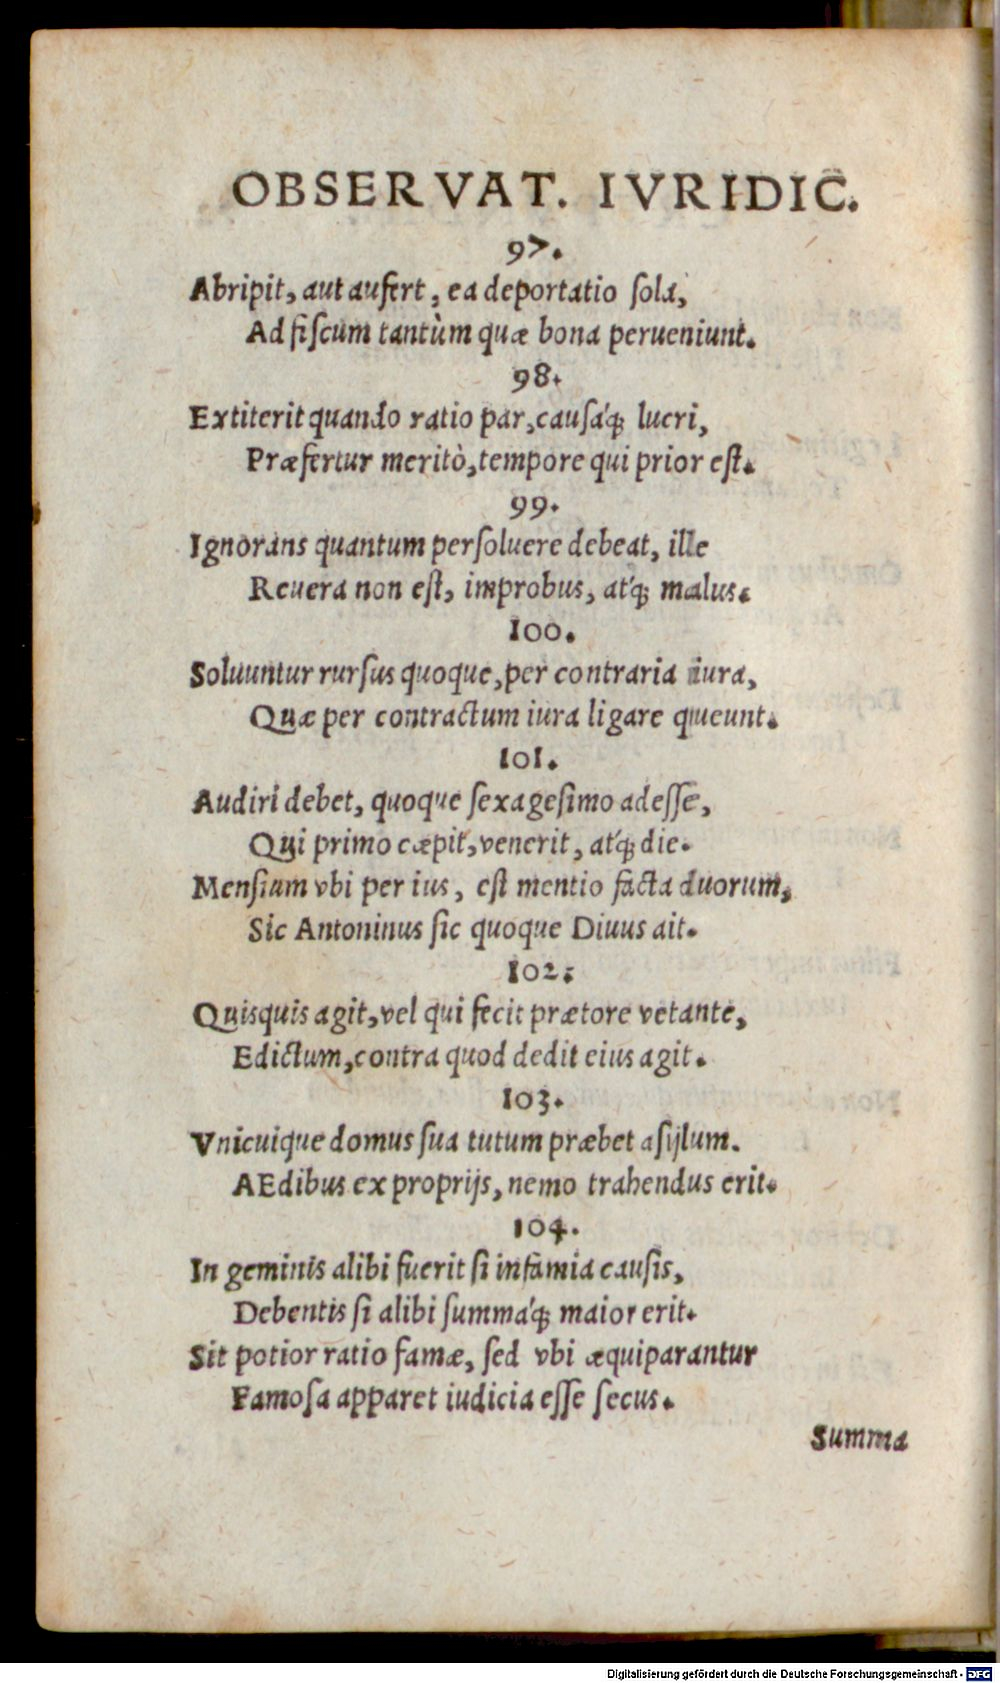 OBSERVAT. IVRIDIC.
97.
Abripit, aut aufert, ea deportatio sola,
Ad fiscum tantùm quæ bona perueniunt.
98.
Extiterit quando ratio par, causáq; lucri,
Præfertur meritò, tempore qui prior est.
99.
Ignorans quantum persoluere debeat, ille
Reuera non est, improbus, atq́; malus.
100.
Soluuntur rursus quoque, per contraria iura,
Quæ per contractum iura ligare queunt.
101.
Audiri debet, quoque sexagesimo adesse,
Qui primo cæpit, venerit, atq́; die.
Mensium vbi per ius, est mentio facta duorum,
Sic Antoninus sic quoque Diuus ait.
102.
Quisquis agit, vel qui fecit prætore vetante,
Edictum, contra quod dedit eius agit.
103.
Vnicuique domus sua tutum præbet asijlum.
AEdibus ex proprijs, nemo trahendus erit.
104.
In geminis alibi fuerit si infamia causis,
Debentis si alibi summáq; maior erit.
Sit potior ratio famæ, sed vbi æquiparantur
Famosa apparet iudicia esse secus.
Summa
Digitalisierung gefördert durch die Deutsche Forschungsgemeinschaft - DFG